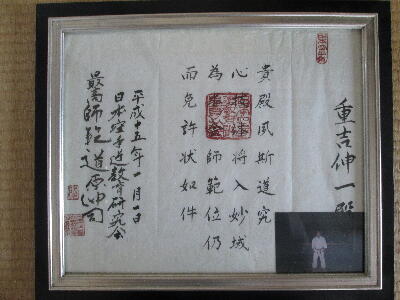 重吉伸一殿
貴殿夙斯道究
心
将入妙域
為
師範位仍
而免許状如件
平成十五年一月一日
日本空手道教育研究会
最高師範
道原伸司